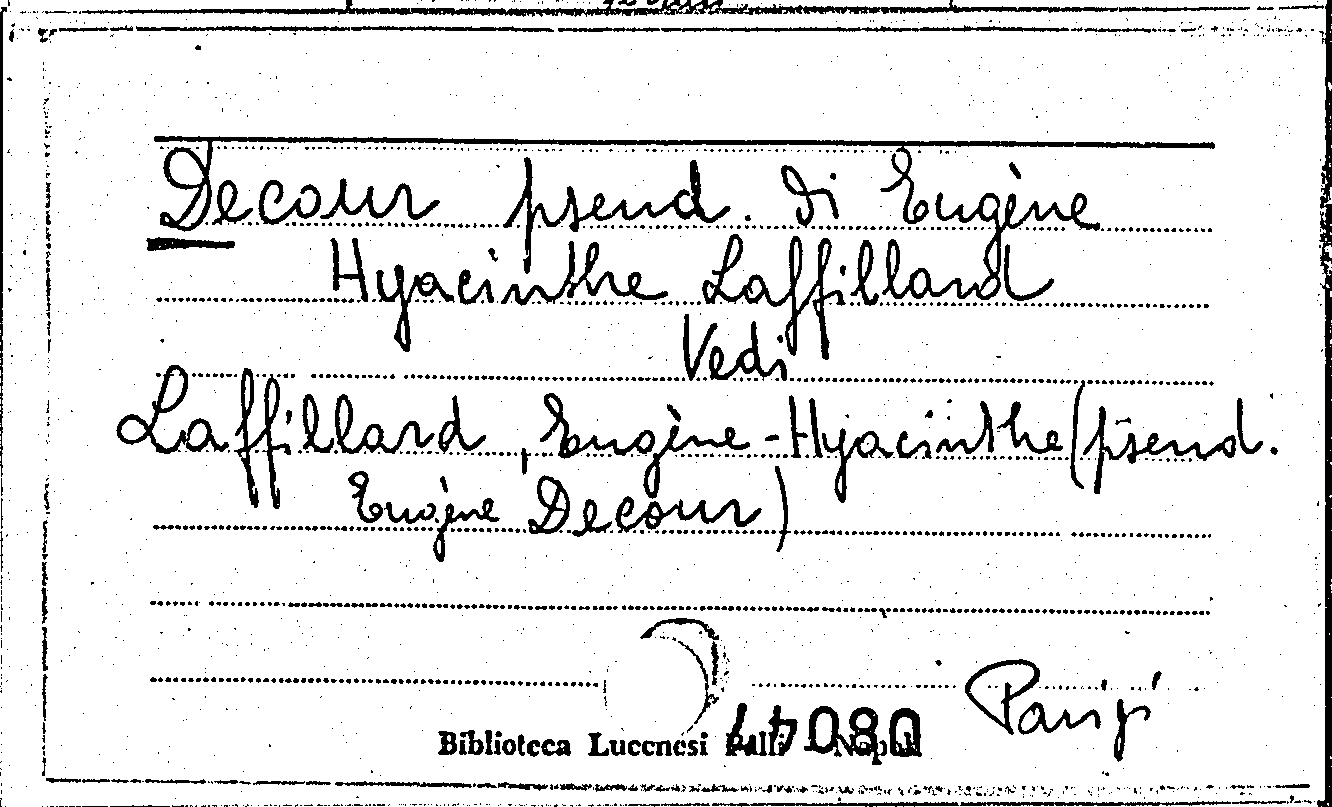 Decour pseud. di Eugène
Hyacinthe Laffillard
Vedi
Laffillard, Eugène-Hyacinthe (pseud.
Eugène Decour)
Parigi
Biblioteca Lucchesi Palli - Napoli